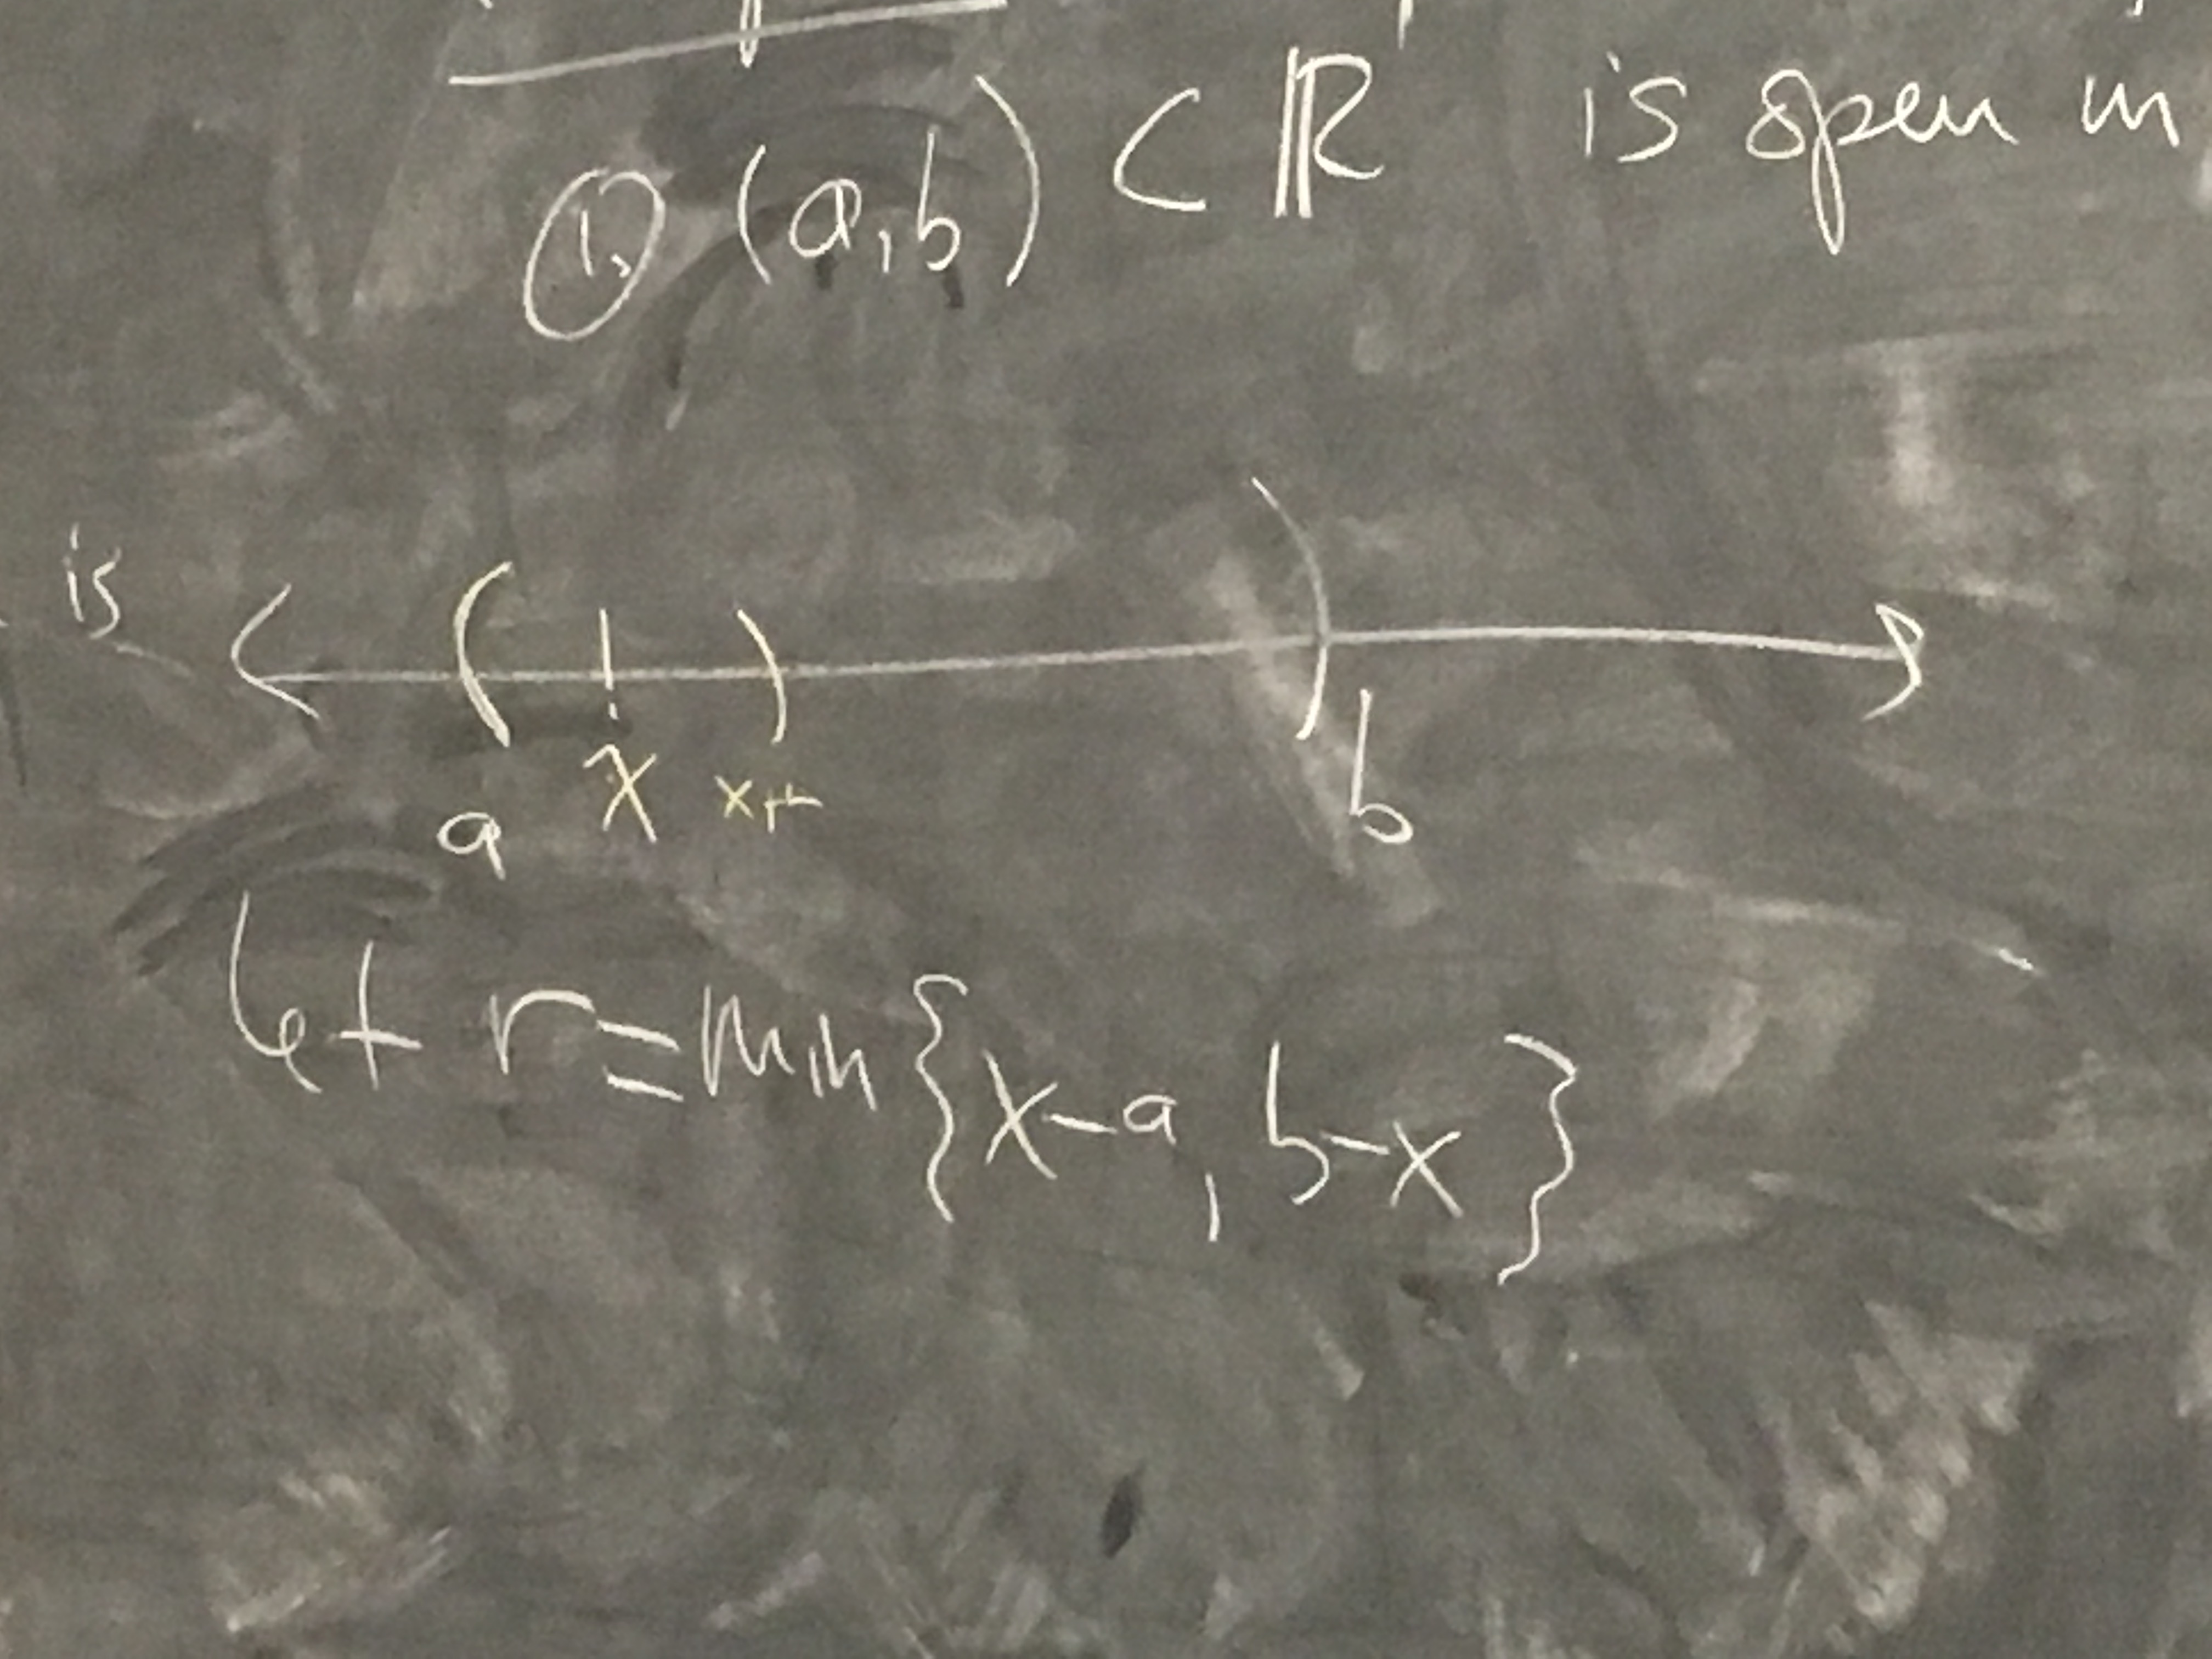 ①. (a,b) ⊂ ℝ¹ is open in
is
( | ) )
a x x+r b
Let r = min {x-a, b-x}